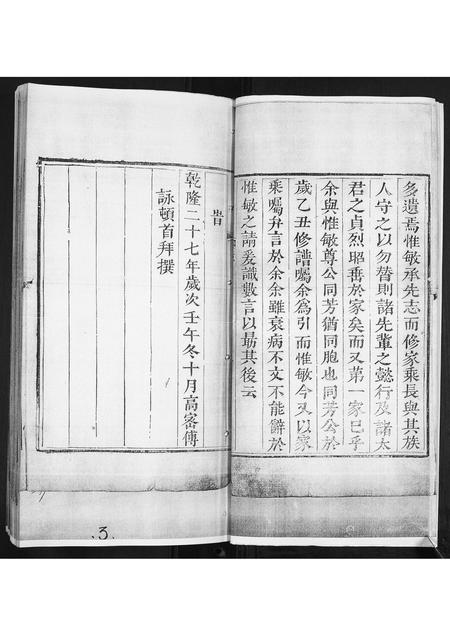 多遺焉惟敏承先志而修家乘長與其族
人守之以勿替則諸先輩之懿行及諸太
君之貞烈昭垂於家矣而又第一家已乎
余與惟敏尊公同芳猶同胞也同芳公於
歲乙丑修譜囑余為引而惟敏今又以家
乘囑弁言於余余雖衰病不文不能辭於
惟敏之請爰識數言以勗其後云
旹
乾隆二十七年歲次壬午冬十月高密傅
詠頓首拜撰
3